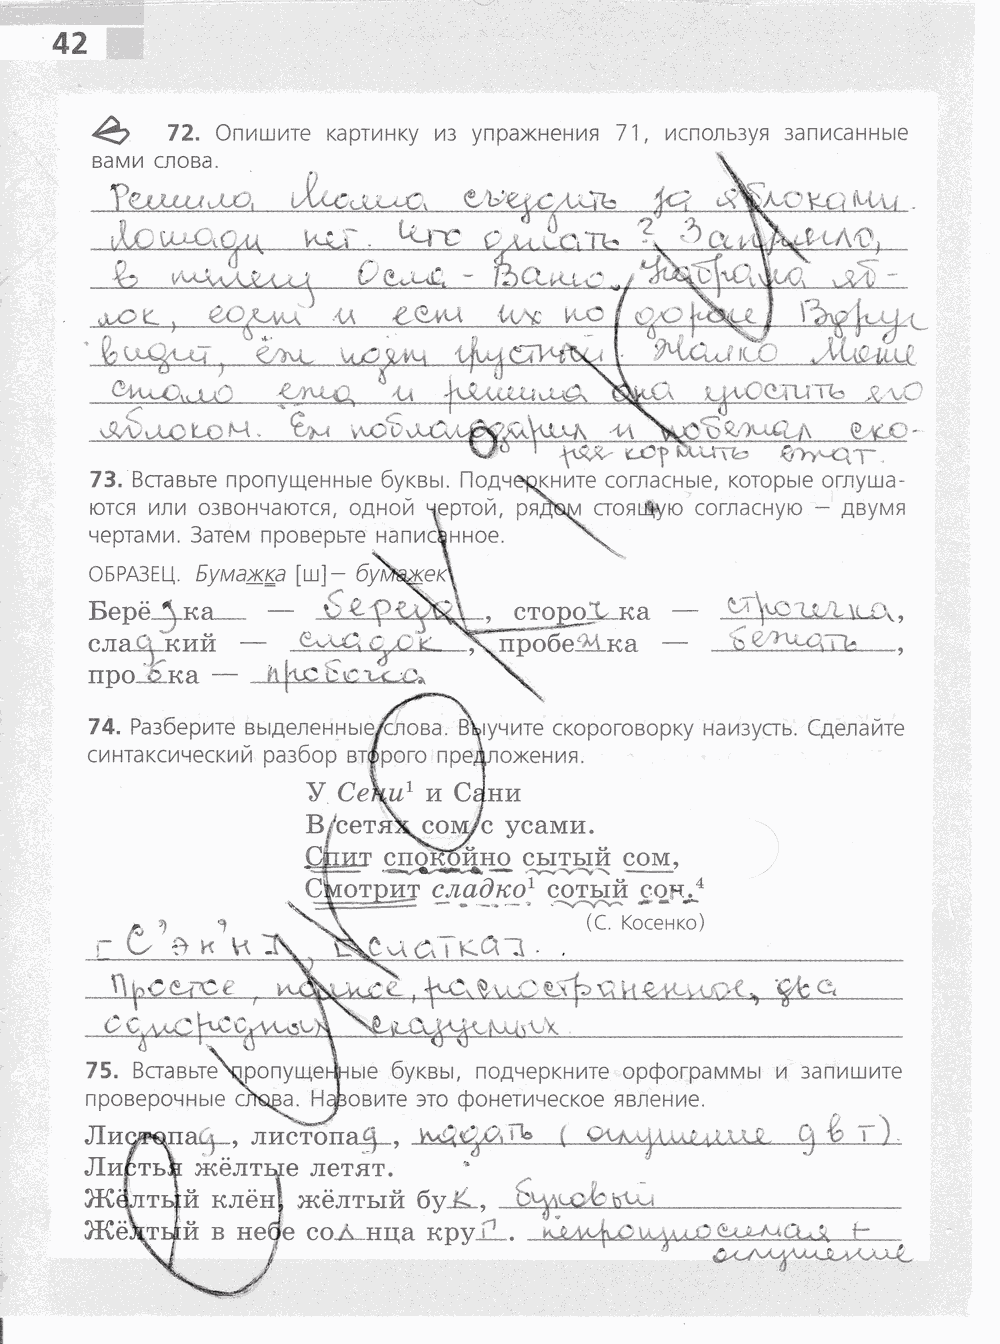 42
72. Опишите картинку из упражнения 71, используя записанные
вами слова.
Решила Маша съездить за яблоками.
Лошади нет. Что делать? Запрягла,
в телегу Осла - Ваню. Набрала яб-
лок, едет и ест их по дороге. Вдруг
видит, ёж идёт грустный. Жалко Маше
стало ежа и решила она угостить его
яблоком. Ёж поблагодарил и побежал ско-
рее кормить ежат.
73. Вставьте пропущенные буквы. Подчеркните согласные, которые оглуша-
ются или озвончаются, одной чертой, рядом стоящую согласную — двумя
чертами. Затем проверьте написанное.
ОБРАЗЕЦ. Бумажка [ш] — бумажек
Берёзка — береза, сторочка — строчечка,
сладкий — сладок, пробежка — бежать,
пробка — пробочка
74. Разберите выделенные слова. Выучите скороговорку наизусть. Сделайте
синтаксический разбор второго предложения.
У Сени¹ и Сани
В сетях сом с усами.
Спит спокойно сытый сом,
Смотрит сладко¹ сотый сон.⁴
(С. Косенко)
[слатка].
Простое, полное, распостраненное, два
однородных сказуемых
75. Вставьте пропущенные буквы, подчеркните орфограммы и запишите
проверочные слова. Назовите это фонетическое явление.
Листопад, листопад, падать (оглушение д в т).
Листья жёлтые летят.
Жёлтый клён, жёлтый бук, буковый
Жёлтый в небе солнца круг. непроизносимая +
оглушение